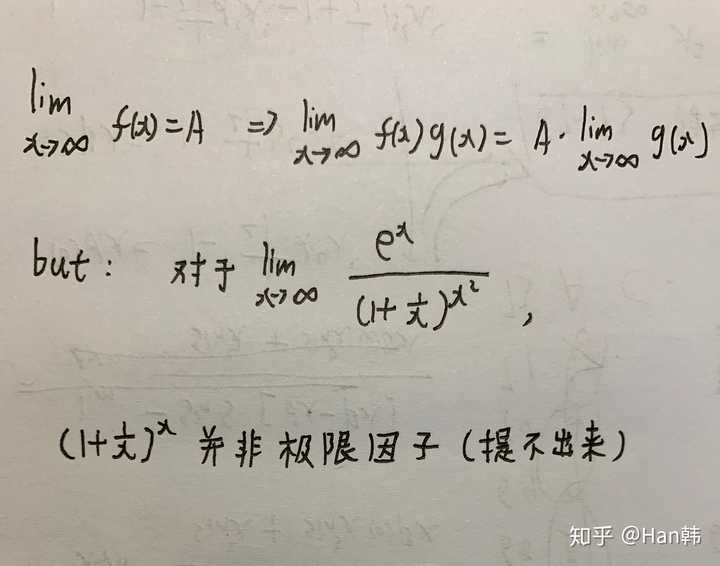 lim x→∞ f(x) = A ⇒ lim x→∞ f(x)g(x) = A · lim x→∞ g(x)
but : 对于 lim x→∞ e^x / (1+1/x)^x² ,
(1+1/x)^x 并非极限因子(提不出来)
知乎 @Han韩